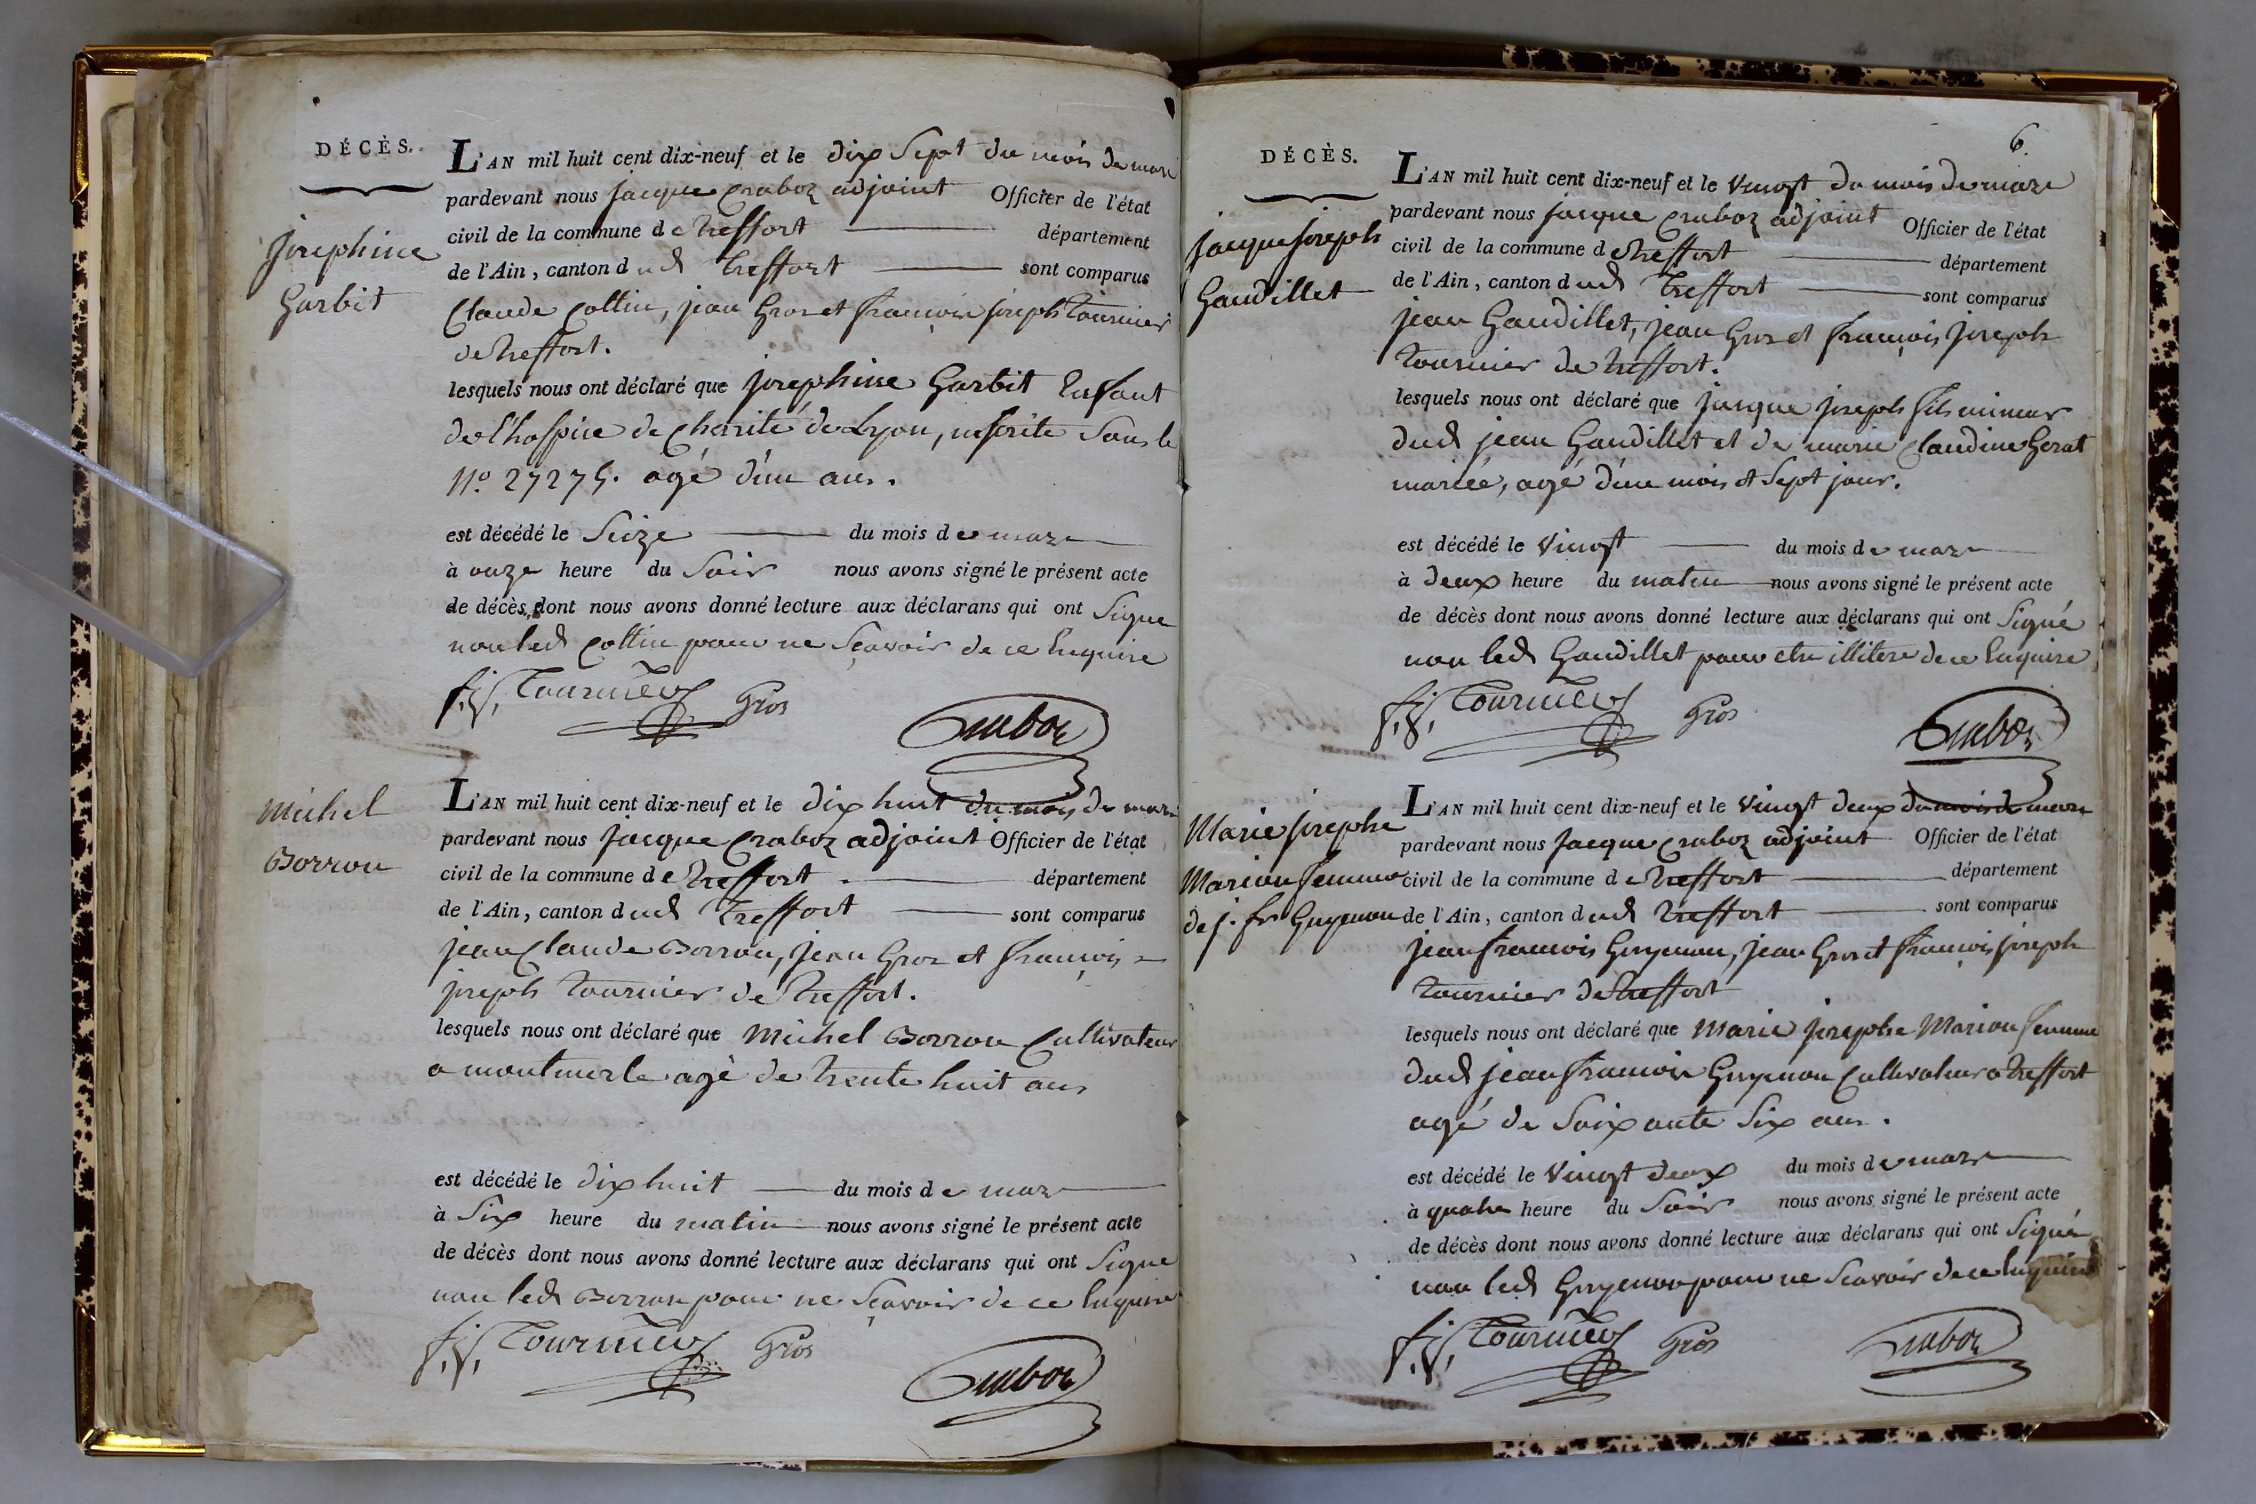 DÉCÈS.
Josephine
Garbit
L'AN mil huit cent dix-neuf et le dix Sept du mois de mars
pardevant nous jacque Craboz adjoint Officier de l'état
civil de la commune de treffort département
de l'Ain, canton dud treffort sont comparus
Claude Collin, jean Gros et françois joseph tournier
de treffort.
lesquels nous ont déclaré que josephine Garbit Enfant
de l'hospice de Charité de Lyon, inscrite Sous le
N.º 27275. agé d'un ans.
est décédé le Seize du mois de mars
à onze heure du Soir nous avons signé le présent acte
de décès dont nous avons donné lecture aux déclarans qui ont Signe
non led Collin pour ne Sçavoir de ce Enquire
f. j. Tournier Gros Craboz
Michel
Borron
L'AN mil huit cent dix-neuf et le dix huit du mois de mars
pardevant nous jacque Craboz adjoint Officier de l'état
civil de la commune de treffort département
de l'Ain, canton dud treffort sont comparus
jean Claude Borron, jean Gros et françois
joseph tournier de treffort.
lesquels nous ont déclaré que Michel Borron Cultivateur
a montmerle agé de trente huit ans
est décédé le dix huit du mois de mars
à Six heure du matin nous avons signé le présent acte
de décès dont nous avons donné lecture aux déclarans qui ont Signe
non led Borron pour ne Sçavoir de ce Enquire
f. j. Tournier Gros Craboz
6.
DÉCÈS.
jacque joseph
Gaudillet
L'AN mil huit cent dix-neuf et le vingt du mois de mars
pardevant nous jacque Craboz adjoint Officier de l'état
civil de la commune de treffort département
de l'Ain, canton dud treffort sont comparus
jean Gaudillet, jean Gros et françois joseph
tournier de treffort.
lesquels nous ont déclaré que jacque joseph fils mineur
dud jean Gaudillet et de marie Claudine Gerat
mariée, agé d'un mois et Sept jour.
est décédé le vingt du mois de mars
à deux heure du matin nous avons signé le présent acte
de décès dont nous avons donné lecture aux déclarans qui ont Signé
non led Gaudillet pour etre illitere de ce Enquire
f. j. Tournier Gros Craboz
Marie josephe
Marion femme
de j. fs Guymon
L'AN mil huit cent dix-neuf et le vingt deux du mois de mars
pardevant nous jacque Craboz adjoint Officier de l'état
civil de la commune de treffort département
de l'Ain, canton dud treffort sont comparus
jean francois Guymon, jean Gros et françois joseph
tournier de treffort
lesquels nous ont déclaré que Marie josephe Marion femme
dud jean francois Guymon Cultivateur a treffort
agé de Soixante Six ans.
est décédé le vingt deux du mois de mars
à quatre heure du Soir nous avons signé le présent acte
de décès dont nous avons donné lecture aux déclarans qui ont Signé
non led Guymon pour ne Scavoir de ce Enquire
f. j. Tournier Gros Craboz